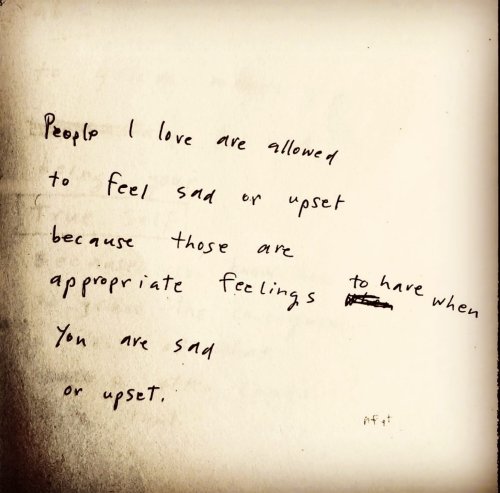 People I love are allowed
to feel sad or upset
because those are
appropriate feelings to have when
you are sad
or upset.